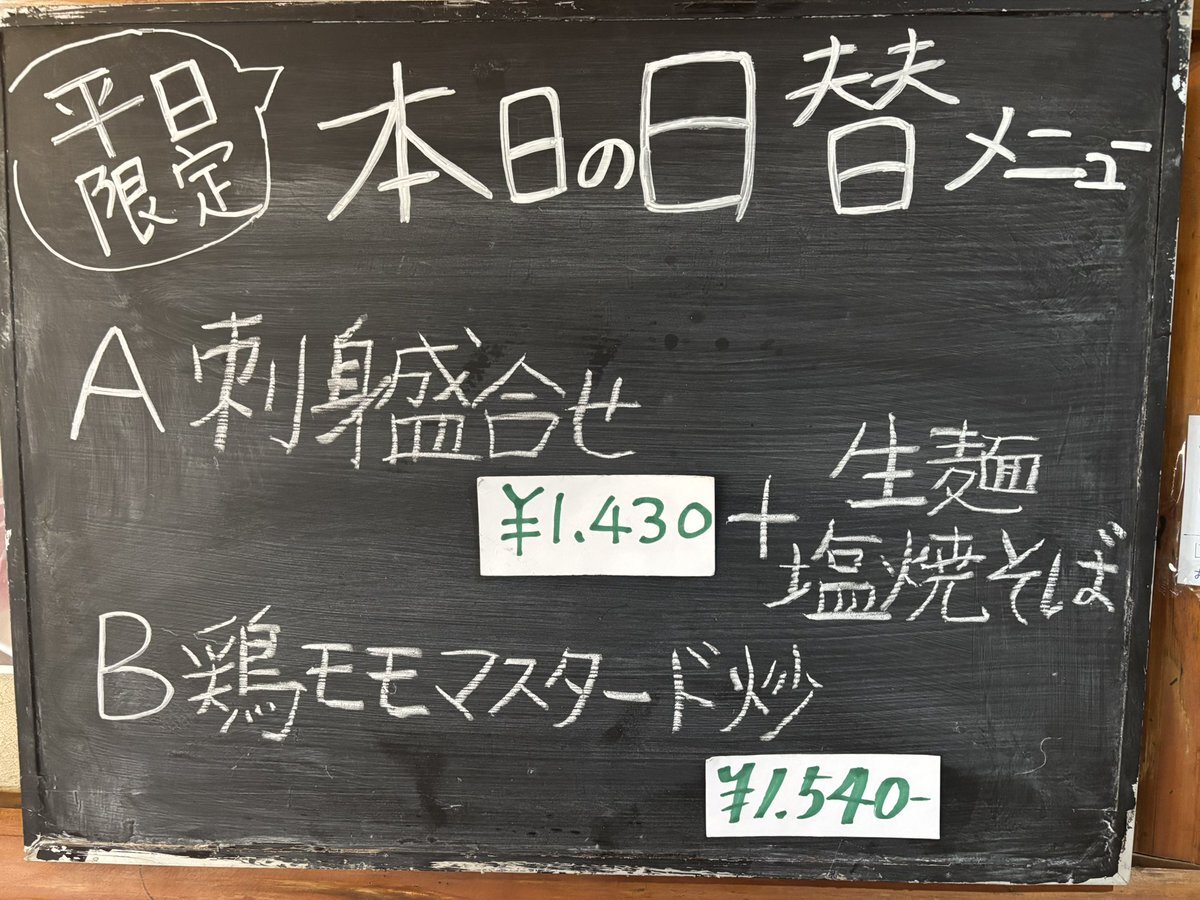 平日
限定
本日の日替メニュー
A 刺身盛合せ
¥1.430
+ 生麺
塩焼そば
B 鶏モモマスタード炒
¥1.540-